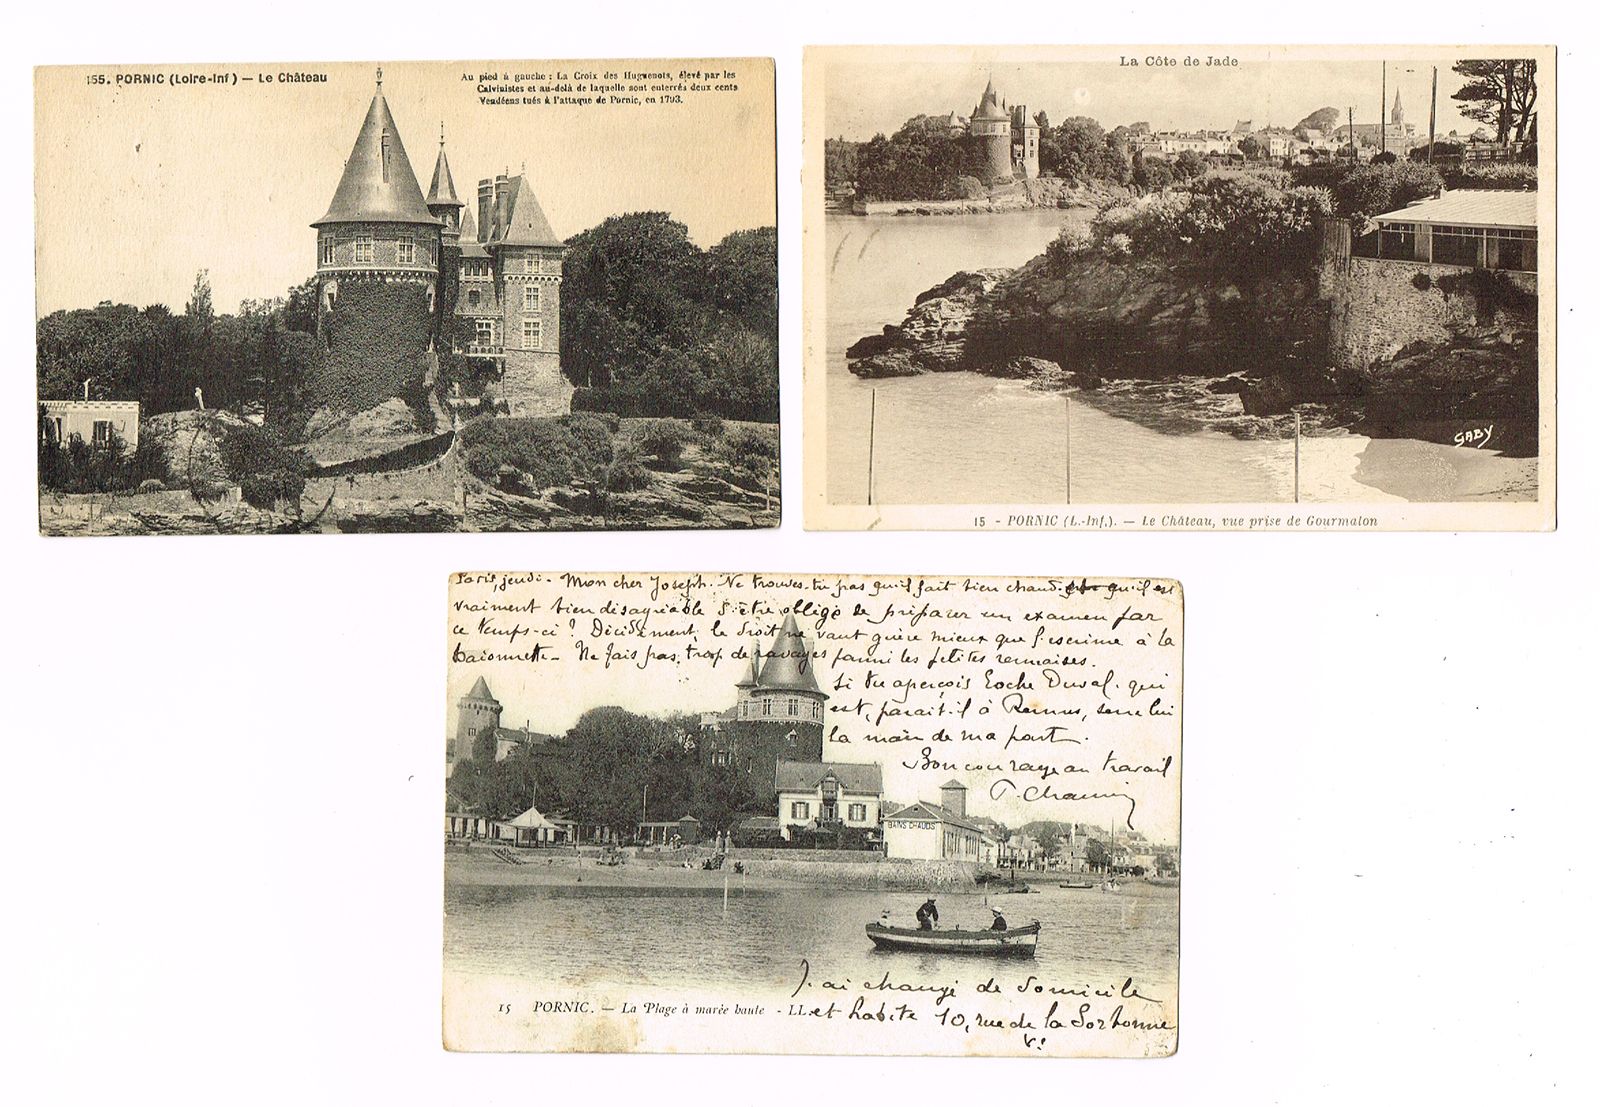 155. PORNIC (Loire-Inf) — Le Château
Au pied à gauche : La Croix des Huguenots, élevé par les
Calvinistes et au-delà de laquelle sont enterrés deux cents
Vendéens tués à l'attaque de Pornic, en 1793.
La Côte de Jade
GABY
15 - PORNIC (L.-Inf.). — Le Château, vue prise de Gourmalon
Paris, jeudi - Mon cher Joseph. Ne trouves-tu pas qu'il fait bien chaud qu'il est
vraiment bien désagréable d'être obligé de préparer un examen par
ce temps-ci ? Décidément, le droit ne vaut guère mieux que l'escrime à la
baïonnette - Ne fais pas trop de ravages parmi les petites rennaises.
Si tu aperçois Loche Duval qui
est, paraît-il à Rennes, serre lui
la main de ma part.
Bon courage au travail
BAINS CHAUDS
J'ai changé de domicile
15 PORNIC. — La Plage à marée haute - LL.
et habite 10, rue de la Sorbonne